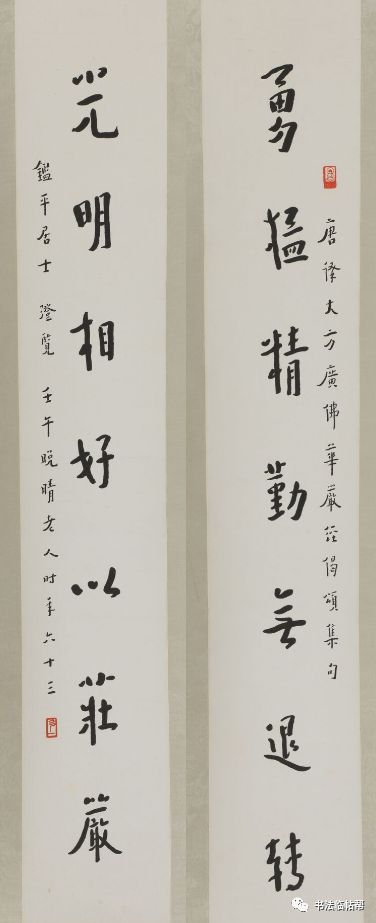 勇猛精勤無退轉
唐譯大方廣佛華嚴經偈頌集句
光明相好以莊嚴
鑑平居士 澄覽 壬午晚晴老人时年六十三
书法临帖帮